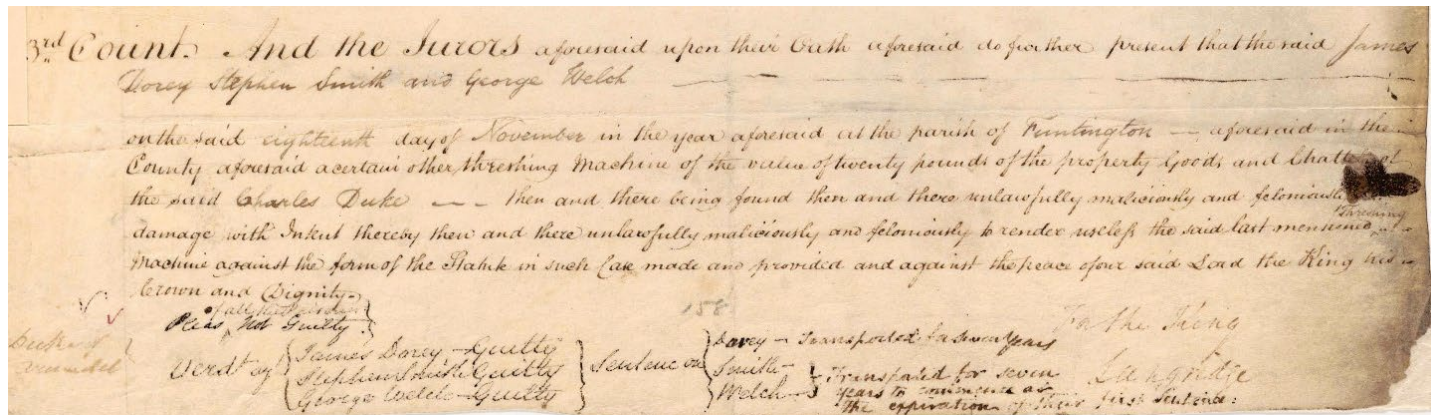 3rd Count. And the Jurors aforesaid upon their Oath aforesaid do further present that the said James
Dorey Stephen Smith and George Welch
on the said eighteenth day of November in the year aforesaid at the parish of Funtington — aforesaid in the
County aforesaid a certain other threshing Machine of the value of twenty pounds of the property Goods and Chattels of
the said Charles Duke — — then and there being found then and there unlawfully maliciously and feloniously
threshing
damage with Intent thereby then and there unlawfully maliciously and feloniously to render useless the said last mentioned
Machine against the form of the Statute in such Case made and provided and against the peace of our said Lord the King his
Crown and Dignity.
of all the
Pleas, Not Guilty.
158
For the King
Verdt of
James Dorey — Guilty
Stephen Smith Guilty
George Welch — Guilty
Sentence on
Dorey — Transported for seven Years
Smith —
Welch —
Transported for seven
Years to commence at
the expiration of their first Sentence:
Langridge
Duke of